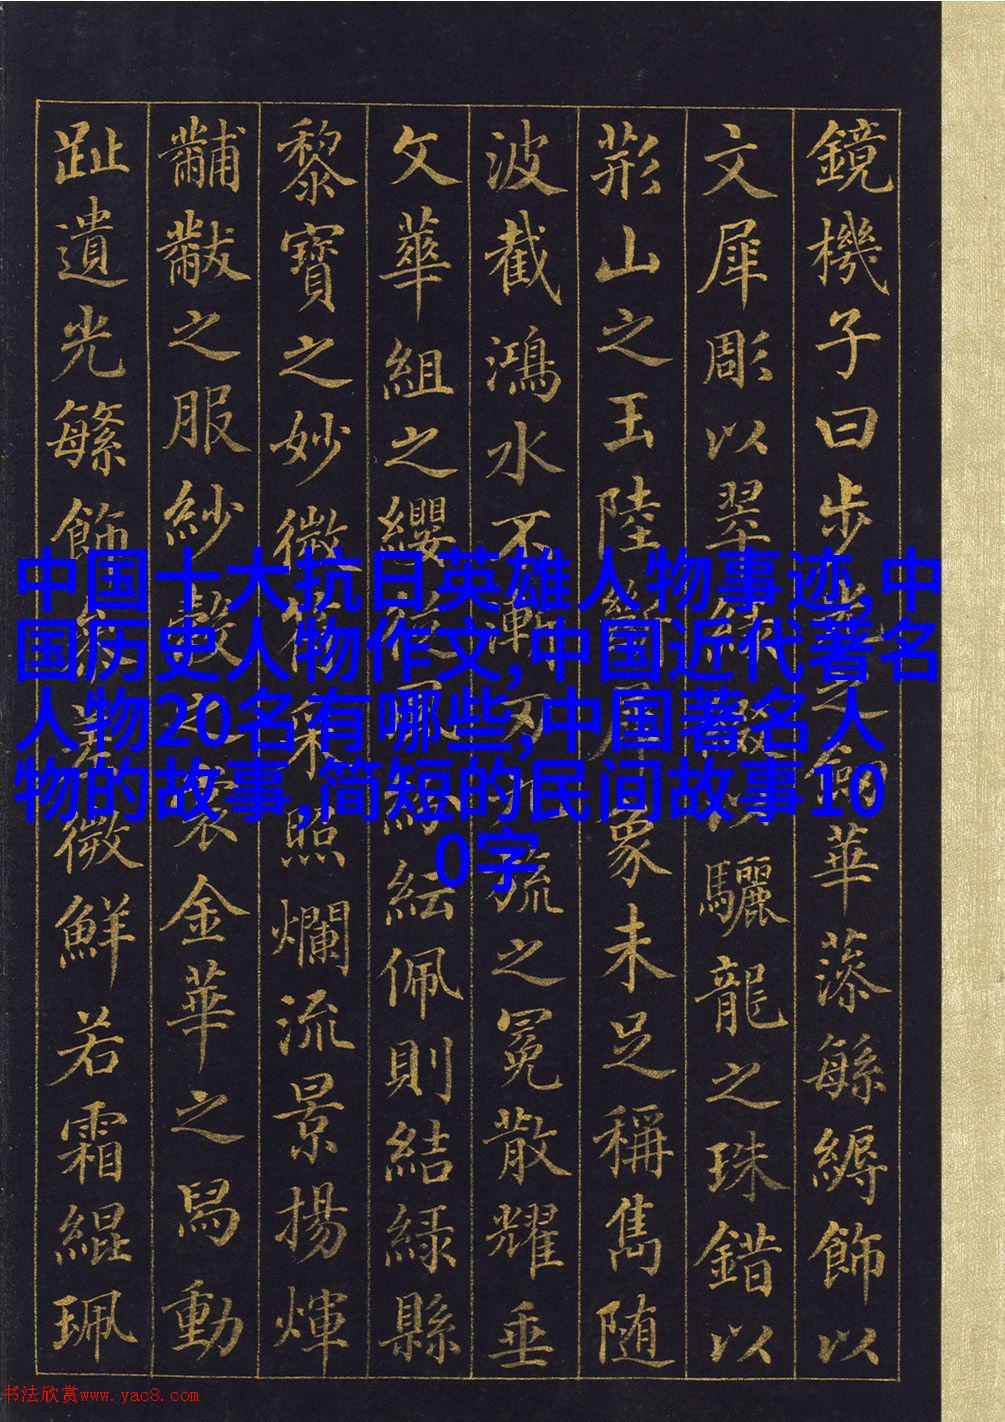 鏡機子曰步光之劍華藻緐縟飾以
文犀彫以翠綠綴以驪龍之珠錯以
荊山之玉陸斷犀象未足稱雋随
波截鴻水不漸刃九旒之冕散耀垂
文華組之纓從風紛紜佩則結綠縣
黎寶之妙微符采照爛流景揚煇
黼黻之服紗縠之裳金華之舄動
趾遺光繁飾參差微鮮若霜緄珮
中国十大抗日英雄人物事迹,中
国历史人物作文,中国近代著名
人物20名有哪些,中国著名人
物的故事,简短的民间故事10
0字
书法欣赏www.yac8.com